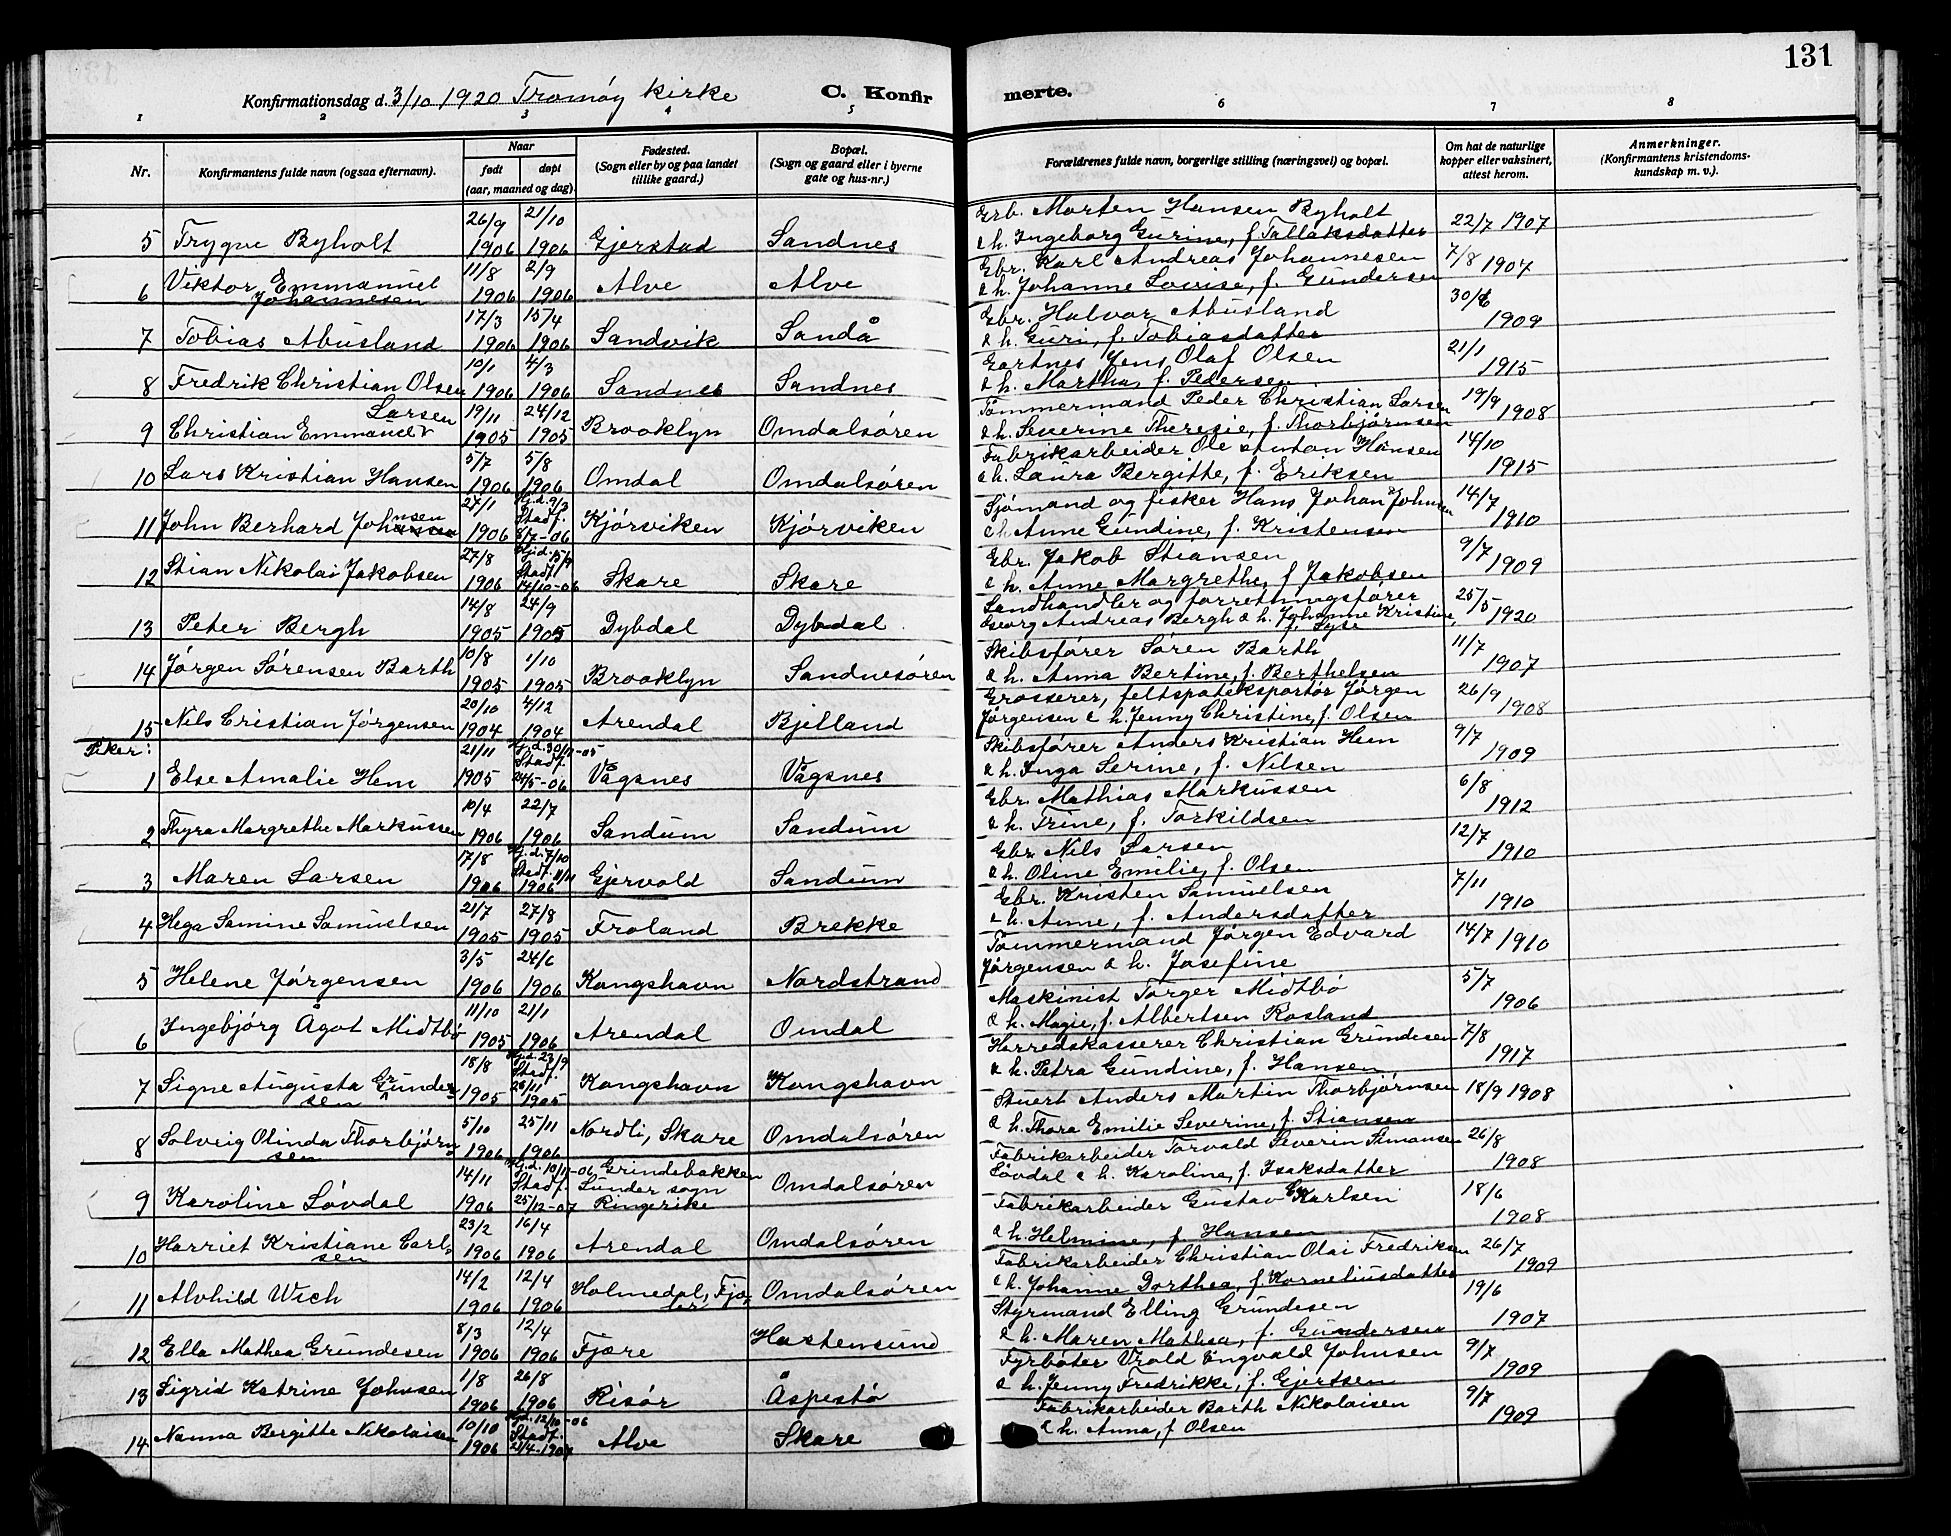 131
Konfirmationsdag d. 3/10 1920 Tromøy kirke C. Konfirmerte.
1 2 3 4 5 6 7 8
Nr. Konfirmantens fulde navn (ogsaa efternavn). Naar født døpt (aar, maaned og dag). Fødested. (Sogn eller by og paa landet tillike gaard.) Bopæl. (Sogn og gaard eller i byerne gate og hus-nr.) Forældrenes fulde navn, borgerlige stilling (næringsvei) og bopæl. Om hat de naturlige kopper eller vaksinert, attest herom. Anmerkninger. (Konfirmantens kristendomskundskap m. v.).
5 Trygve Byholt 26/9 1906 21/10 1906 Gjerstad Sandnes Morten Hansen Byholt & h. Ingeborg Gurine, f. Tallaksdatter 22/7 1907
6 Viktor Emmanuel Johannesen 11/8 1906 2/9 1906 Alve Alve Gbr. Karl Andreas Johannesen & h. Johanne Lovise, f. Gundersen 7/8 1904
7 Tobias Abusland 17/3 1906 15/4 1906 Sandvik Sandå Gbr. Halvor Abusland & h. Guri, f. Tobiasdatter 1909
8 Fredrik Christian Olsen 10/1 1906 4/3 1906 Sandnes Sandnes Gartner Jens Olaf Olsen & h. Martha, f. Pedersen 21/1 1915
9 Christian Emmanuel Larsen 19/11 1905 24/12 1905 Brooklyn Omdalsøren Tømmermand Peder Christian Larsen & h. Severine Theresie, f. Thorbjørnsen 19/9 1908
10 Lars Kristian Hansen 5/7 1906 5/8 1906 Omdal Omdalsøren Fabrikarbeider Ole Anton Hansen & h. Laura Bergitte, f. Eriksen 14/10 1915
11 John Berhard Johnsen 27/1 1906 Hj.d. 9/2 Stadf. 8/7-06 Kjørviken Kjørviken Sjømand og fisker Hans Johan Johnsen & h Anne Gundine, f. Kristensen 14/7 1910
12 Stian Nikolai Jakobsen 27/8 1906 Hj.d. 15/9 Stadf. 14/10-06 Skare Skare Gbr. Jakob Stiansen & h. Anne Margrethe, f Jakobsen 9/7 1909
13 Peter Bergh 14/8 1905 24/9 1905 Dybdal Dybdal Landhandler og forretningsfører Georg Andreas Bergh & h. Johanne Kristine, f. Lyse 25/5 1920
14 Jørgen Sørensen Barth 10/8 1905 1/10 1905 Brooklyn Sandnesøren Skibsfører Søren Barth & h. Anna Bertine, f. Berthelsen 11/7 1907
15 Nils Cristian Jørgensen 20/10 1904 4/12 1904 Arendal Bjelland Grosserer, feltspateksportør Jørgen Jørgensen & h. Jenny Christine, f. Olsen 26/9 1908
Piker:
1 Else Amalie Hem 21/11 1905 Hj.d. 30/11-05 Stadf. 24/5-06 Vågsnes Vågsnes Skibsfører Anders Kristian Hem & h. Inga Serine, f. Nilsen 9/7 1909
2 Thyra Margrethe Markussen 10/4 1906 22/7 1906 Sandum Sandum Gbr. Mathias Markussen & h. Trine, f. Torkildsen 6/8 1912
3 Maren Larsen 17/8 1906 Hj.d. 7/10 Stadf. 11/11 1906 Gjervold Sandum Gbr. Nils Larsen & h. Oline Emilie, f. Olsen 12/7 1910
4 Hega Samine Samuelsen 21/7 1905 27/8 1905 Froland Brekke Gbr. Kristen Samuelsen & h. Anne, f. Andersdatter 7/11 1910
5 Helene Jørgensen 3/5 1906 24/6 1906 Kongshavn Nordstrand Tømmermand Jørgen Edvard Jørgensen & h. Josefine 14/7 1910
6 Ingebjørg Ågot Midtbø 11/10 1905 21/1 1906 Arendal Omdal Maskinist Torger Midtbø & h. Magie, f. Albertsen Rosland 5/7 1906
7 Signe Augusta Grundesen 18/8 1905 Hj.d. 23/9 Stadf. 26/11 1905 Kongshavn Kongshavn Herredskasserer Christian Grundesen & h. Petra Gundine, f. Hansen 7/8 1917
8 Solveig Olinda Thorbjørnsen 5/10 1906 25/11 1906 Nordli, Skare Omdalsøren Stuert Anders Martin Thorbjørnsen & h. Thora Emilie Severine, f. Stiansen 18/9 1908
9 Karoline Løvdal 14/11 1906 Hj.d. 10/11-06 Stadf. 25/12-07 Grindebakken Lunder sogn Ringerike Omdalsøren Fabrikarbeider Torvald Severin Simonsen Løvdal & h. Karoline, f. Isaksdatter 26/8 1908
10 Harriet Kristiane Carlsen 23/2 1906 16/4 1906 Arendal Omdalsøren Fabrikarbeider Gustav Karlsen & h. Helmine, f Hansen 18/6 1908
11 Alvhild Wich 14/2 1906 12/4 1906 Holmedal, Omdalsøren Fabrikarbeider Christian Olai Fredriksen & h. Johanne Dorthea, f. Korneliusdatter 26/7 1909
12 Ella Mathea Grundesen 8/3 1906 12/4 1906 Fjære Hastensund Styrmand Elling Grundesen & h. Maren Mathea, f. Gundersen 19/6 1907
13 Sigrid Katrine Johnsen 1/8 1906 26/8 1906 Risør Åspestø Fyrbøter Vrold Engvald Johnsen & h. Jenny Fredrikke, f. Gjertsen 9/7 1909
14 Nanna Bergitte Nikolaisen 10/10 1906 Hj.d. 12/10-06 Stadf. Alve Skare Fabrikarbeider Barth Nikolaisen & h. Anna, f Olsen 9/7 1909